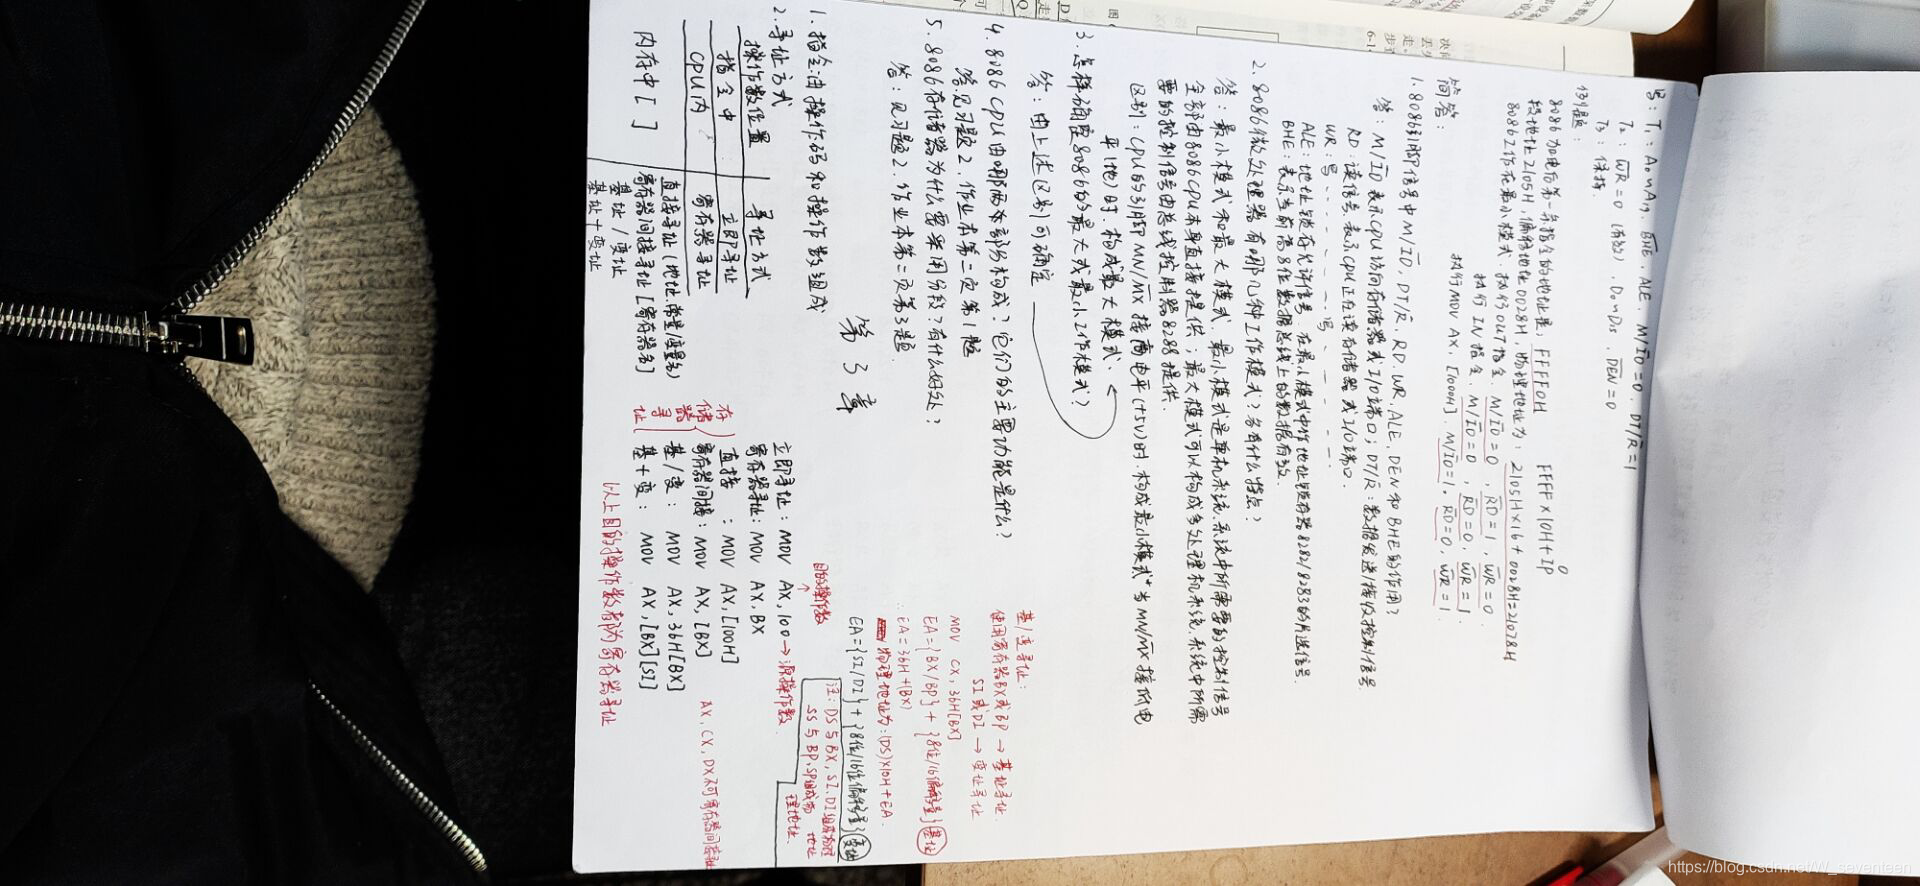 写：T₁：A₀~A₁₉, BHE, ALE, M/IO=0, DT/R=1
T₂：WR=0 (有效), D₀~D₁₅, DEN=0
T₃：保持.
例题：
8086加电后第一条指令的地址是 FFFF0H FFFF×10H+IP 0
段地址2105H,偏移地址0028H,物理地址为：21051H×16+0028H=21078H
8086工作在最小模式.执行OUT指令. M/IO=0, RD=1, WR=0.
执行IN指令. M/IO=0, RD=0, WR=1.
执行MOV AX,[1000H]. M/IO=1, RD=0, WR=1.
简答：
1.8086引脚信号中M/IO, DT/R, RD, WR, ALE, DEN和BHE的作用?
答：M/IO表示CPU访问存储器或I/O端口; DT/R：数据发送/接收控制信号
RD：读信号,表示CPU正在读存储器或I/O端口.
WR：写
ALE：地址锁存允许信号.在最小模式中作地址锁存器8282/8283的片选信号.
BHE：表示当前高8位数据总线上的数据有效.
2.8086微处理器有哪几种工作模式?各有什么特点?
答：最小模式和最大模式.最小模式是单机系统.系统中所需要的控制信号
全部由8086CPU本身直接提供;最大模式可以构成多处理机系统.系统中所需
要的控制信号由总线控制器8288提供.
区别：CPU的引脚MN/MX接高电平(+5V)时.构成最小模式.当MN/MX接低电
平(地)时.构成最大模式.
3.怎样确定8086的最大或最小工作模式?
答：由上述区别可确定
4.8086CPU由哪两本部份构成?它们的主要功能是什么?
答见习题2.作业本第二次第1题
5.8086存储器为什么要采用分段?有什么好处?
答：见习题2.作业本第二次第3题.
第3章
1.指令由操作码和操作数组成
2.寻址方式
操作数位置 寻址方式
指令中 立即寻址
CPU内 寄存器寻址
内存中[ ] 直接寻址(地址.常量.变量名)
寄存器间接寻址[寄存器名]
基址/变址
基址+变址
存储器寻址
立即寻址：MOV AX,100→源操作数
目的操作数
寄存器寻址：MOV AX,BX
直接：MOV AX,[100H]
寄存器间接：MOV AX,[BX]
AX,CX,DX不可寄存器间接寻址
基/变：MOV AX,36H[BX]
基+变：MOV AX,[BX][SI]
以上目的操作数都为寄存器寻址
基/变寻址：
使用寄存器BX或BP→基址寻址.
SI或DI→变址寻址
MOV CX,36H[BX]
EA={BX/BP}+{8位/16偏移量}基址
EA=36H+(BX)
物理地址为:(DS)×10H+EA.
EA={SI/DI}+{8位/16位偏移量}变址
注：DS与BX,SI,DI组成物理地址
SS与BP,SP组成物理地址.
https://blog.csdn.net/W_seventeen